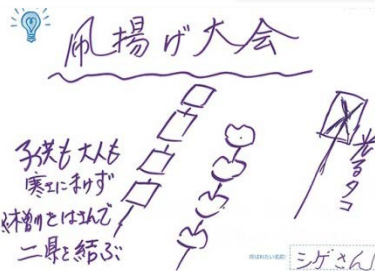 凧揚げ大会
子供も大人も
寒さにまけず
をはさんで
二県を結ぶ
光るタコ
呼ばれたい名前
シゲさん